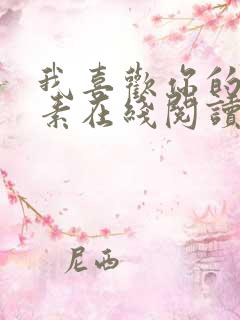 我喜歡你的
素在綫閱讀
尼西